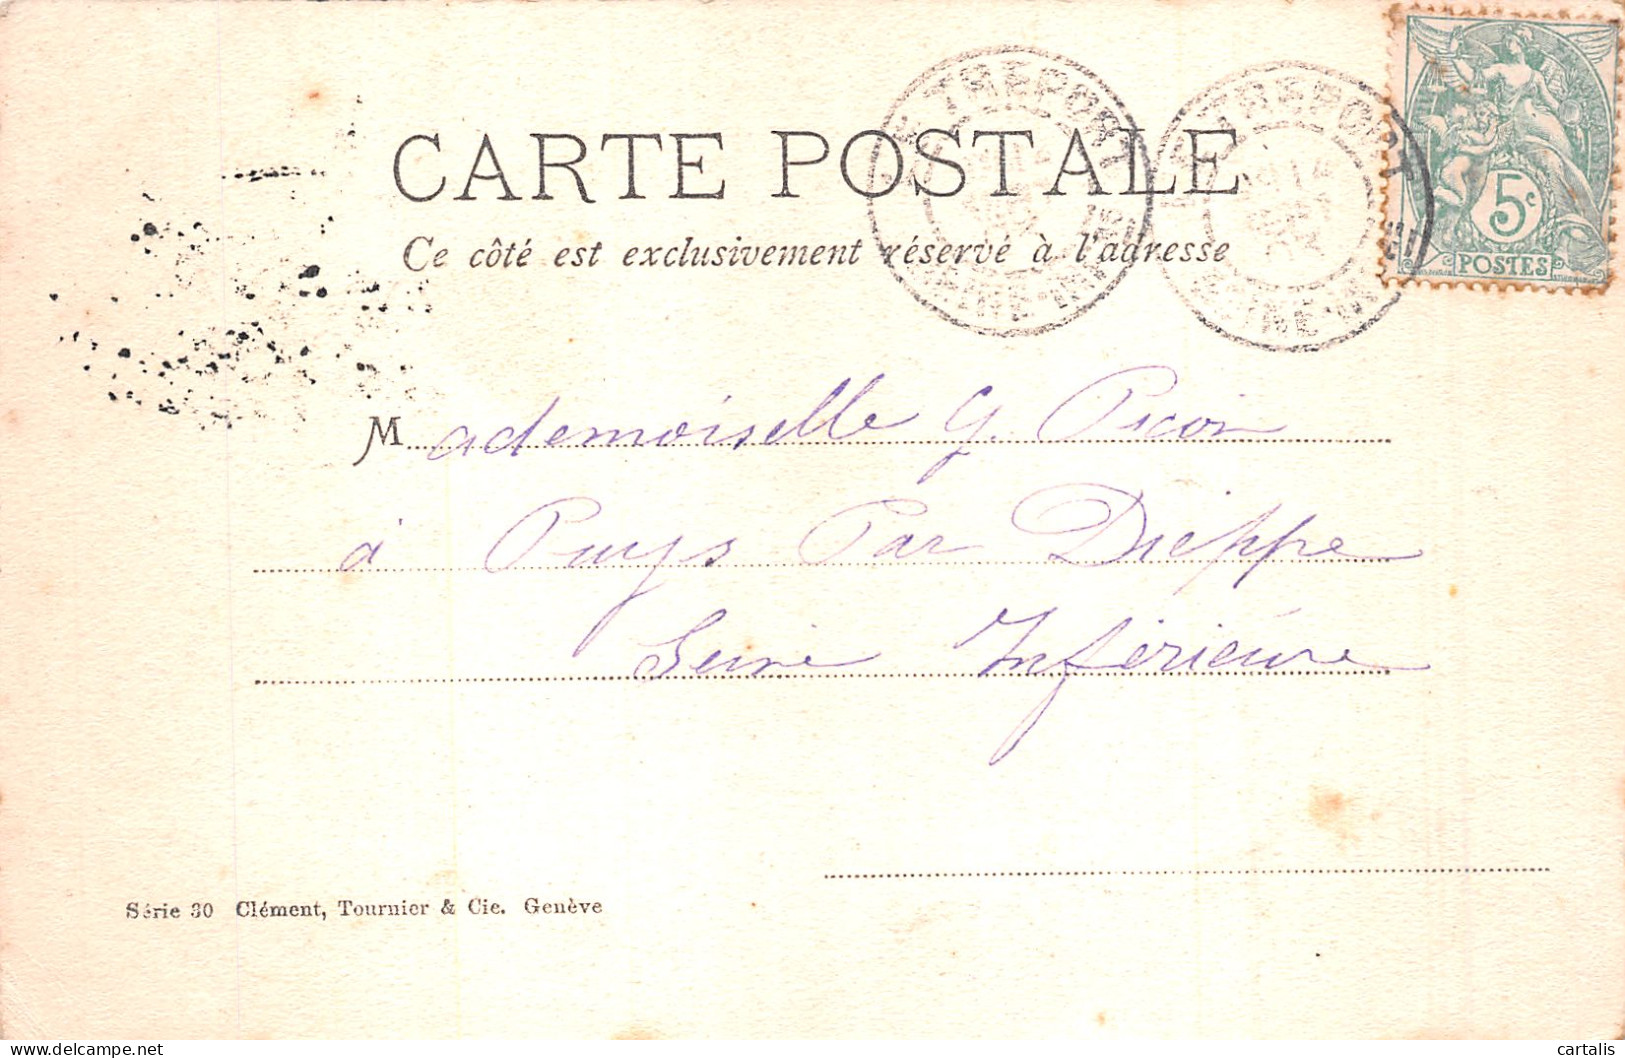 CARTE POSTALE
Ce côté est exclusivement réservé à l'adresse
TREPORT
TREPORT
5c
POSTES
Mademoiselle G. Picon
à Puys Par Dieppe
Seine Inférieure
Série 30 Clément, Tournier & Cie. Genève
cartalis